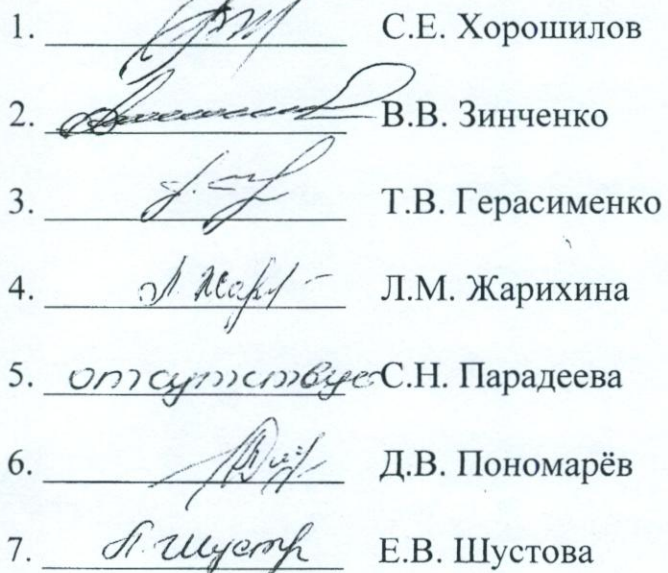 1. С.Е. Хорошилов
2. В.В. Зинченко
3. Т.В. Герасименко
4. Л. Жар Л.М. Жарихина
5. отсутствует С.Н. Парадеева
6. Д.В. Пономарёв
7. Шуст Е.В. Шустова